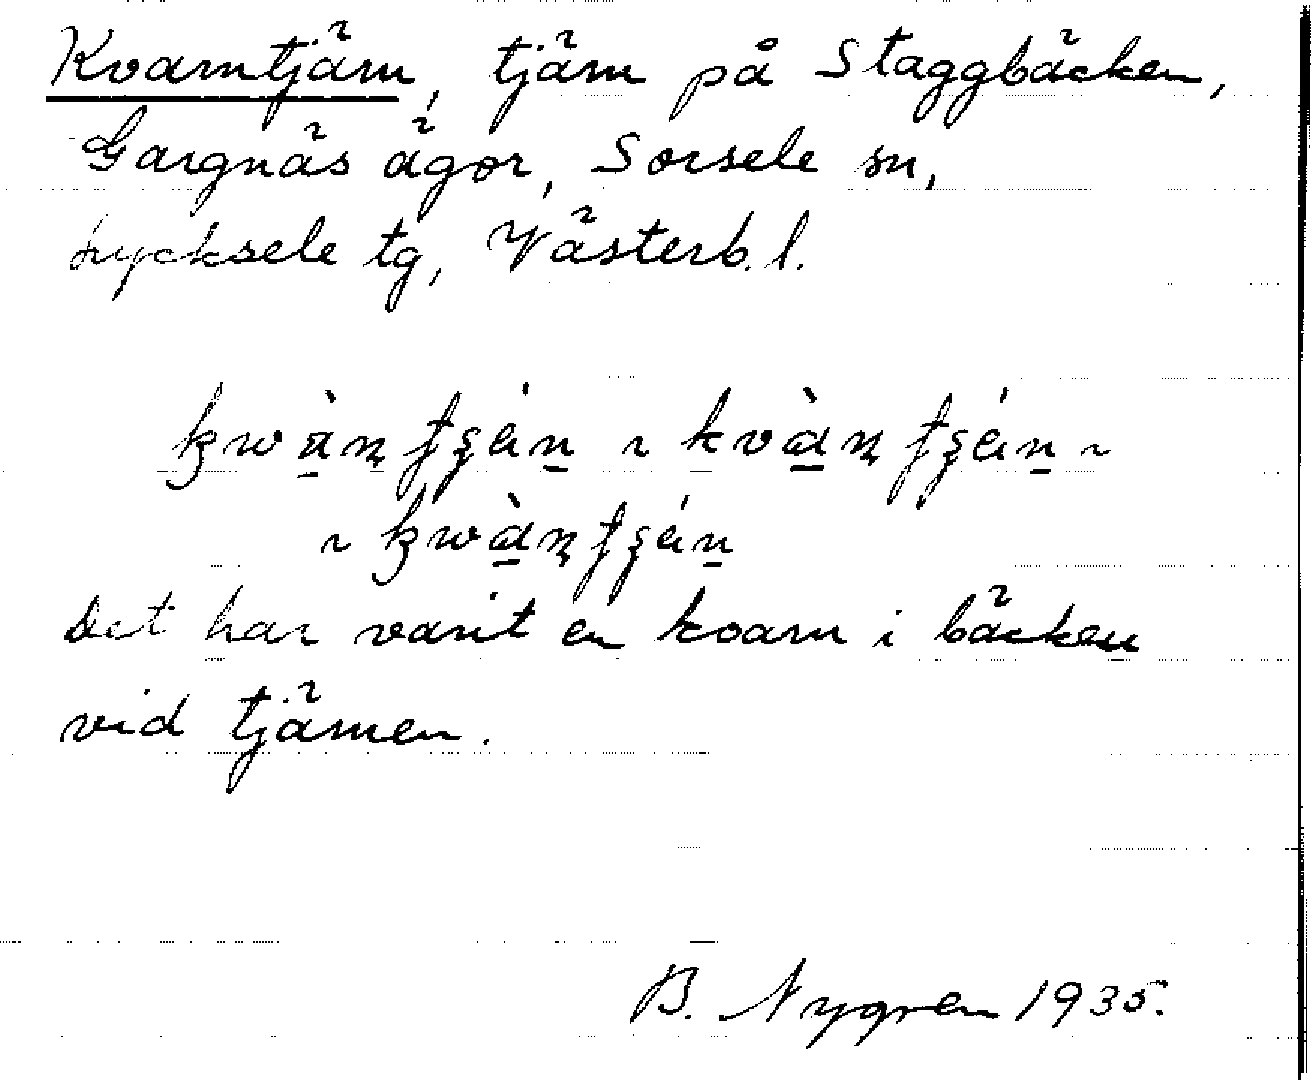 Kvarntjärn, tjärn på Staggbäcken,
Gargnäs ägor, Sorsele sn,
Lycksele tg, Västerb. l.
Det har varit en kvarn i bäcken
vid tjärnen.
B. Nygren 1935.